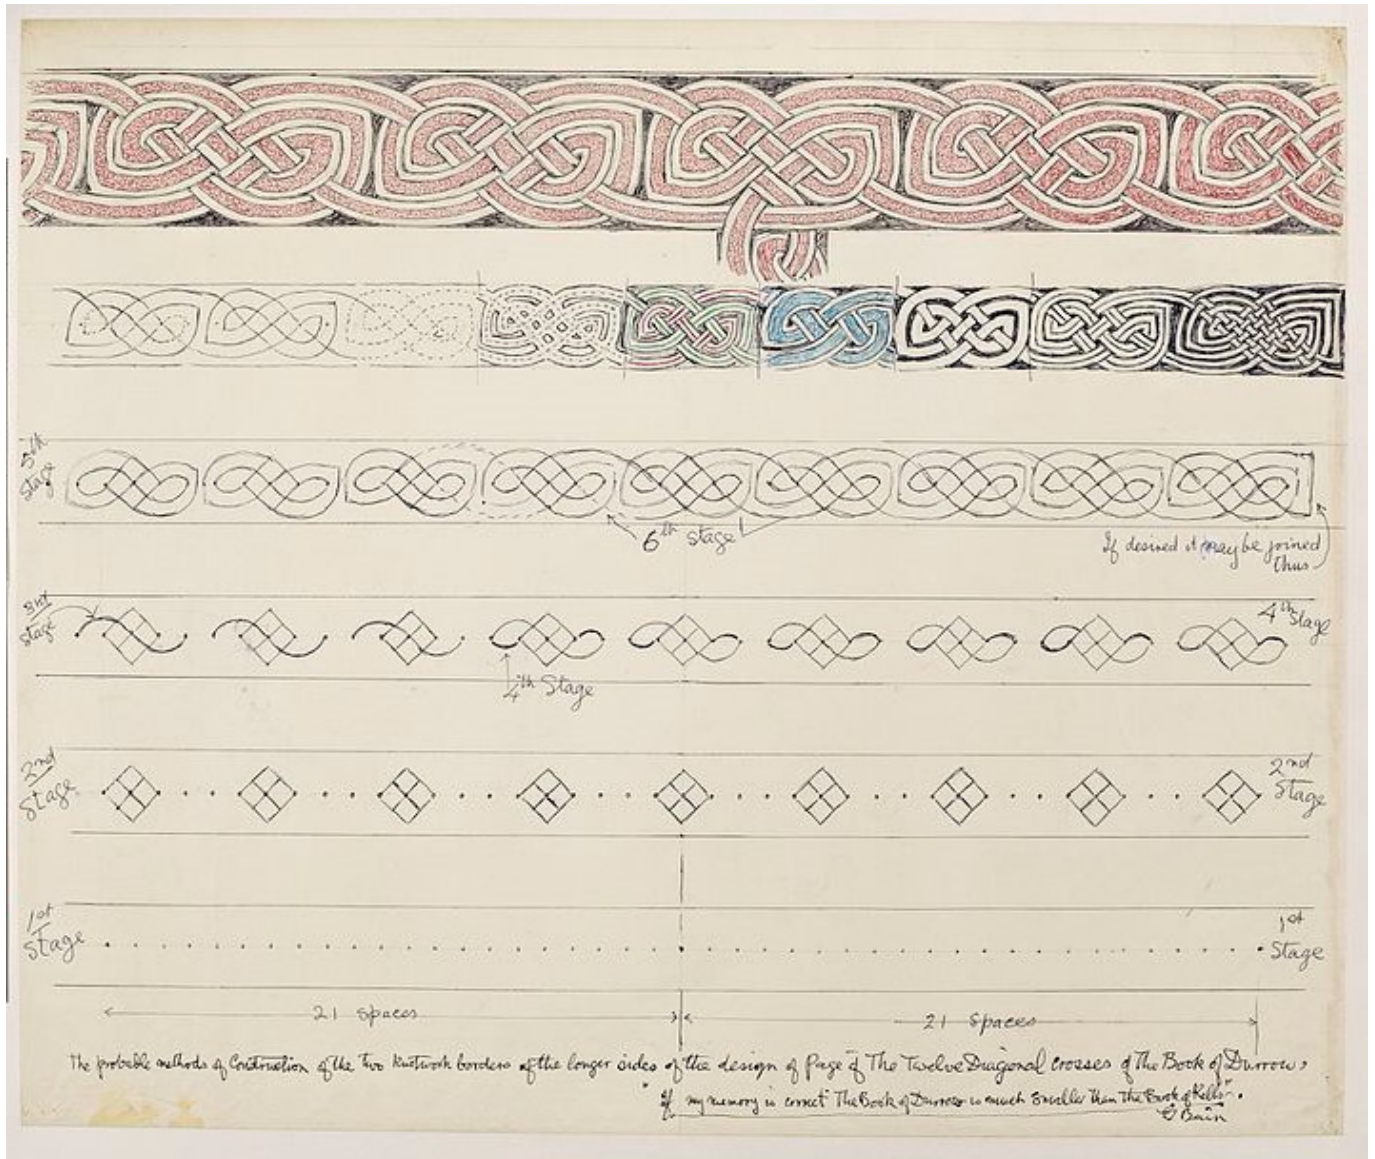 5th
Stage
6th Stage
If desired it may be joined
thus
3rd
Stage
4th Stage
4th Stage
2nd
Stage
2nd
Stage
1st
Stage
1st
Stage
21 Spaces
21 Spaces
The probable methods of Construction of the two Knotwork borders of the longer sides of the design of page of The Twelve Diagonal Crosses of The Book of Durrow,
"If my memory is correct The Book of Durrow is much smaller than the Book of Kells".
G Bain